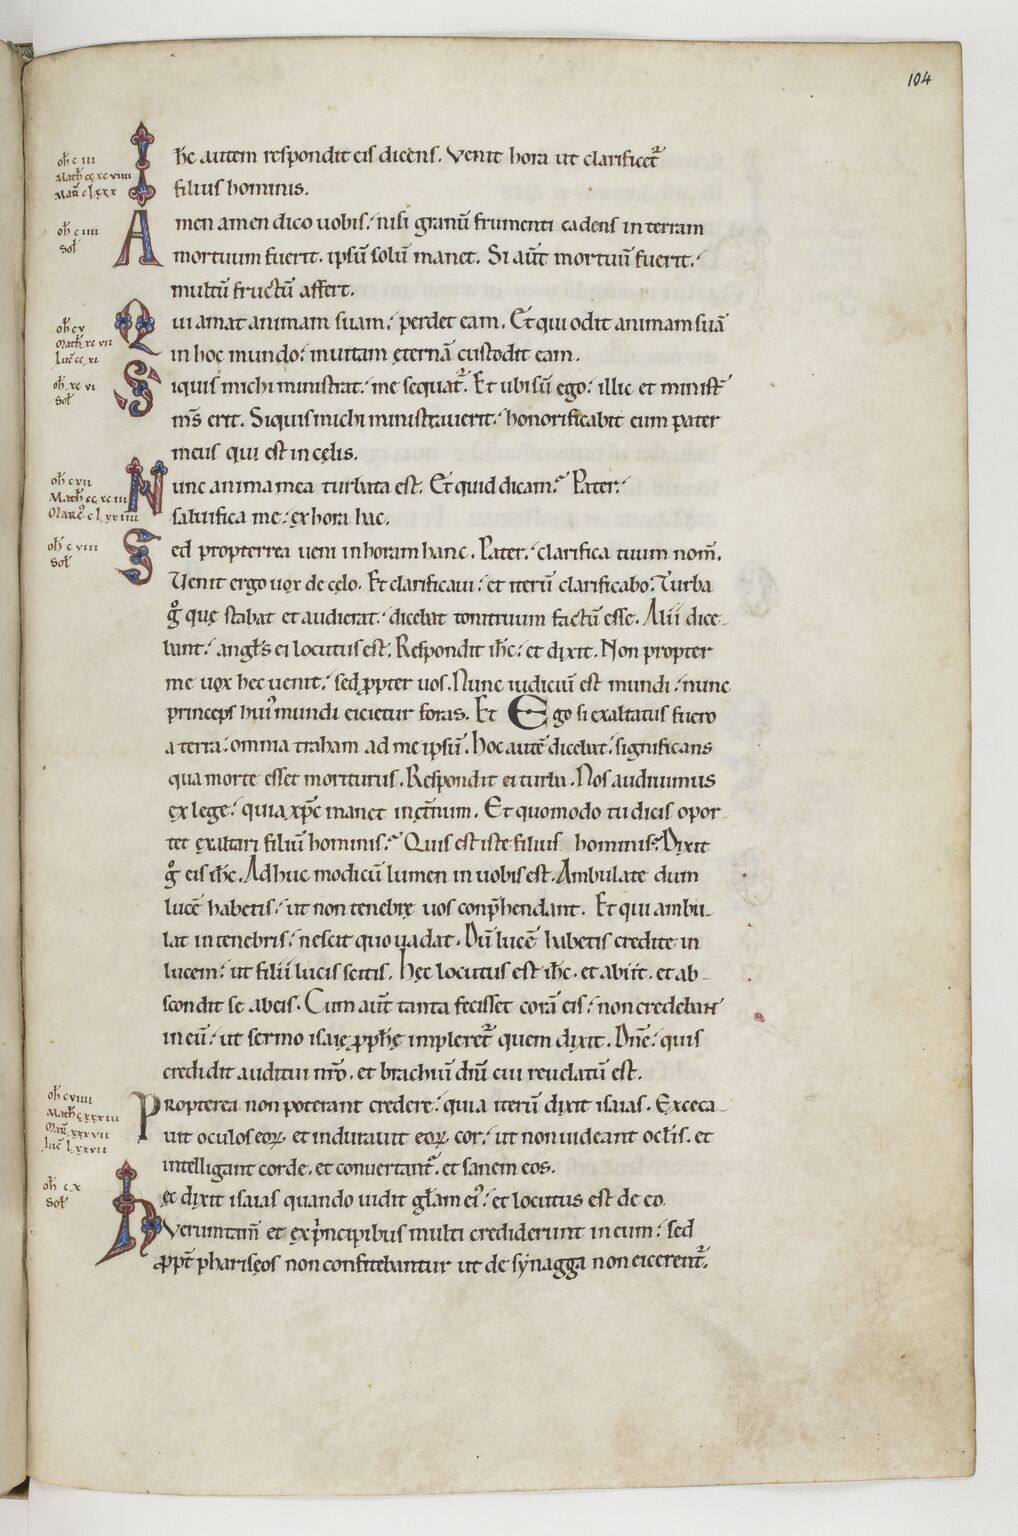 104
Ioh c iii
Math cc xc viiii
Mar c lxxx
Ihc autem respondit eis dicens. Venit hora ut clarificet᷑
filius hominis.
Ioh c iiii
Sol
Amen amen dico uobis. nisi granū frumenti cadens in terram
mortuum fuerit. ipsū solū manet. Si aūt mortuū fuerit.
multū fructū affert.
Ioh c v
Math xc vii
Luc cc xi
Qui amat animam suam. perdet eam. Et qui odit animam suā
in hoc mundo. in uitam ęternā custodit eam.
Sol
Siquis michi ministrat. me sequat᷑. Et ubi sū ego. illic et minist̄
ms̄ erit. Siquis michi ministrauerit. honorificabit eum pater
meus qui est in cęlis.
Ioh c vii
Math cc xc iii
Nunc anima mea turbata est. Et quid dicam? Pater.
saluifica me. ex hora hac.
Ioh c viii
Sol
Sed propterrea ueni in horam hanc. Pater. clarifica tuum nom̄.
Venit ergo uox de cęlo. Et clarificaui. et iterū clarificabo. Turba
gͦ quę stabat et audierat. dicebat tonitruum factū esse. Alii dice-
bant. angl̄s ei locutus est. Respondit ihc. et dixit. Non propter
me uox hec uenit. sed ꝓpter uos. Nunc iudiciū est mundi. nunc
princeps hui᷒ mundi eicietur foras. Et Ego si exaltatus fuero
a terra. omnia traham ad me ipsū. hoc autē dicebat. significans
qua morte esset moriturus. Respondit ei turba. Nos audiuimus
ex lege. quia xp̄c manet in ęt̄num. Et quomodo tu dicis opor-
tet exaltari filiū hominis? Quis est iste filius hominis? Dixit
gͦ eis ihc. Adhuc modicū lumen in uobis est. Ambulate dum
lucē habetis. ut non tenebrę uos conp̄hendant. Et qui ambu-
lat in tenebris. nescit quo uadat. Dū lucē habetis credite in
lucem. ut filii lucis sitis. hęc locutus est ihc. et abiit. et ab-
scondit se ab eis. Cum aūt tanta fecisset corā eis. non credebant
in eū. ut sermo isaię ꝓph̄ę impleret᷑ quem dixit. Dn̄e. quis
credidit auditui nr̄o. et brachiū dn̄i cui reuelatū est.
Ioh c viiii
Math c xxx iii
Luc lxxvii
Propterea non poterant credere. quia iterū dixit isaias. Exceca-
uit oculos eoꝝ. et indurauit eoꝝ cor. ut non uideant ocl̄is. et
intelligant corde. et conuertant᷑. et sanem eos.
Ioh c x
Sol
Hęc dixit isaias quando uidit gl̄am ei᷒. et locutus est de eo.
Veruntam̄ et ex pͥncipibus multi crediderunt in eum. sed
ꝓpt̄ pharisęos non confitebantur ut de synagga non eicerent᷑.